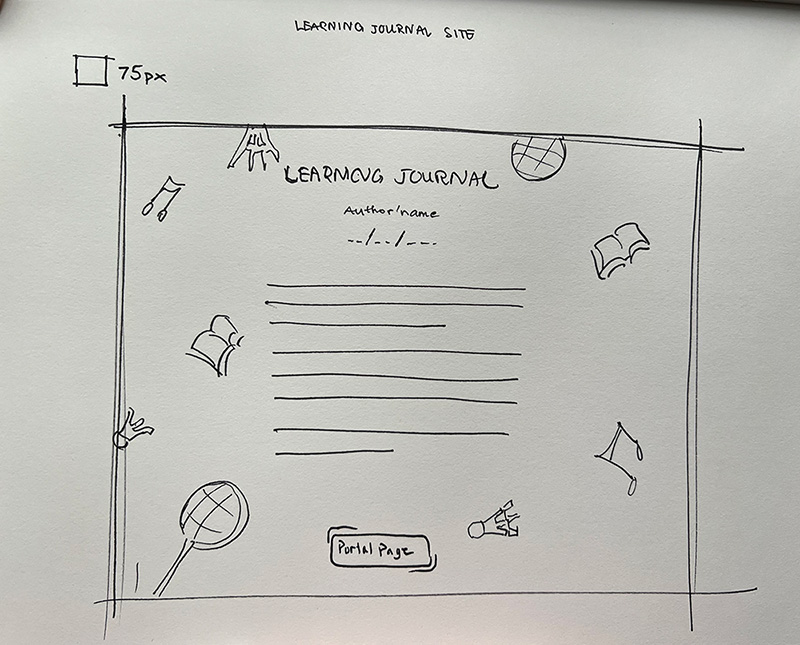 LEARNING JOURNAL SITE
75px
LEARNING JOURNAL
Author'name
--/--/---.
Portal Page